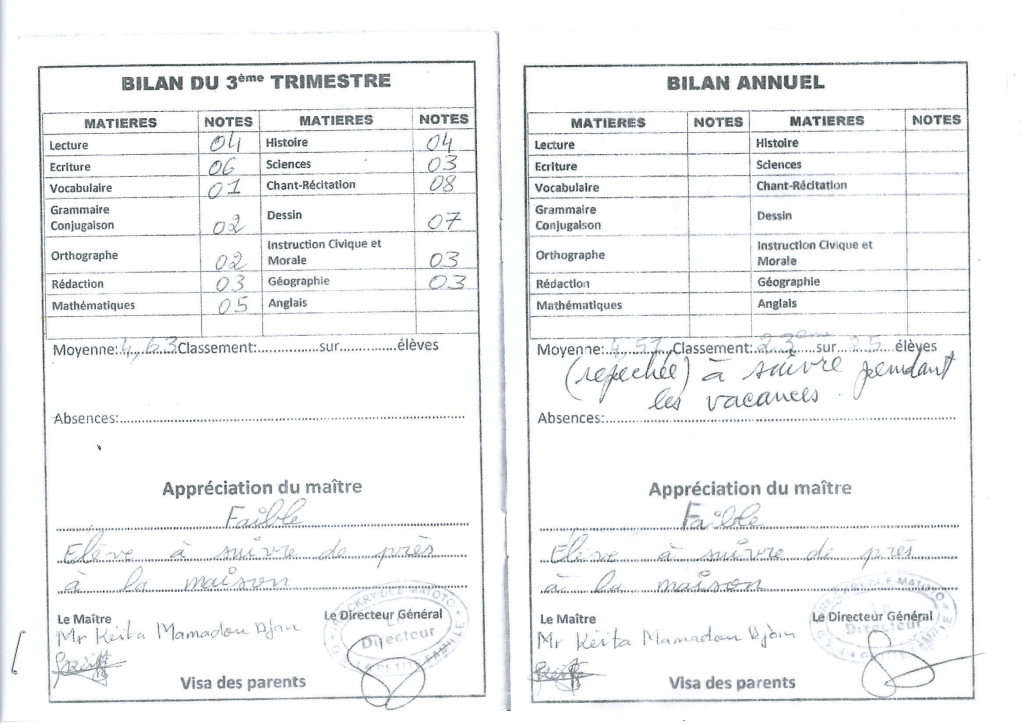 BILAN DU 3ème TRIMESTRE
MATIERES NOTES MATIERES NOTES
Lecture 04 Histoire 04
Ecriture 06 Sciences 03
Vocabulaire 01 Chant-Récitation 08
Grammaire Conjugaison 02 Dessin 07
Orthographe 02 Instruction Civique et Morale 03
Rédaction 03 Géographie 03
Mathématiques 05 Anglais
Moyenne: 4,63 Classement:..............sur..............élèves
Absences:
Appréciation du maître
Faible
Elève à suivre de près
à la maison
Le Maître Le Directeur Général
Mr Keita Mamadou Djan
Directeur
Visa des parents
BILAN ANNUEL
MATIERES NOTES MATIERES NOTES
Lecture Histoire
Ecriture Sciences
Vocabulaire Chant-Récitation
Grammaire Conjugaison Dessin
Orthographe Instruction Civique et Morale
Rédaction Géographie
Mathématiques Anglais
Moyenne: 4,51 Classement: 23ème sur élèves
(repechée) à suivre pendant
les vacances.
Absences:
Appréciation du maître
Faible
Elève à suivre de près
à la maison
Le Maître Le Directeur Général
Mr Keita Mamadou Djan
Directeur
Visa des parents